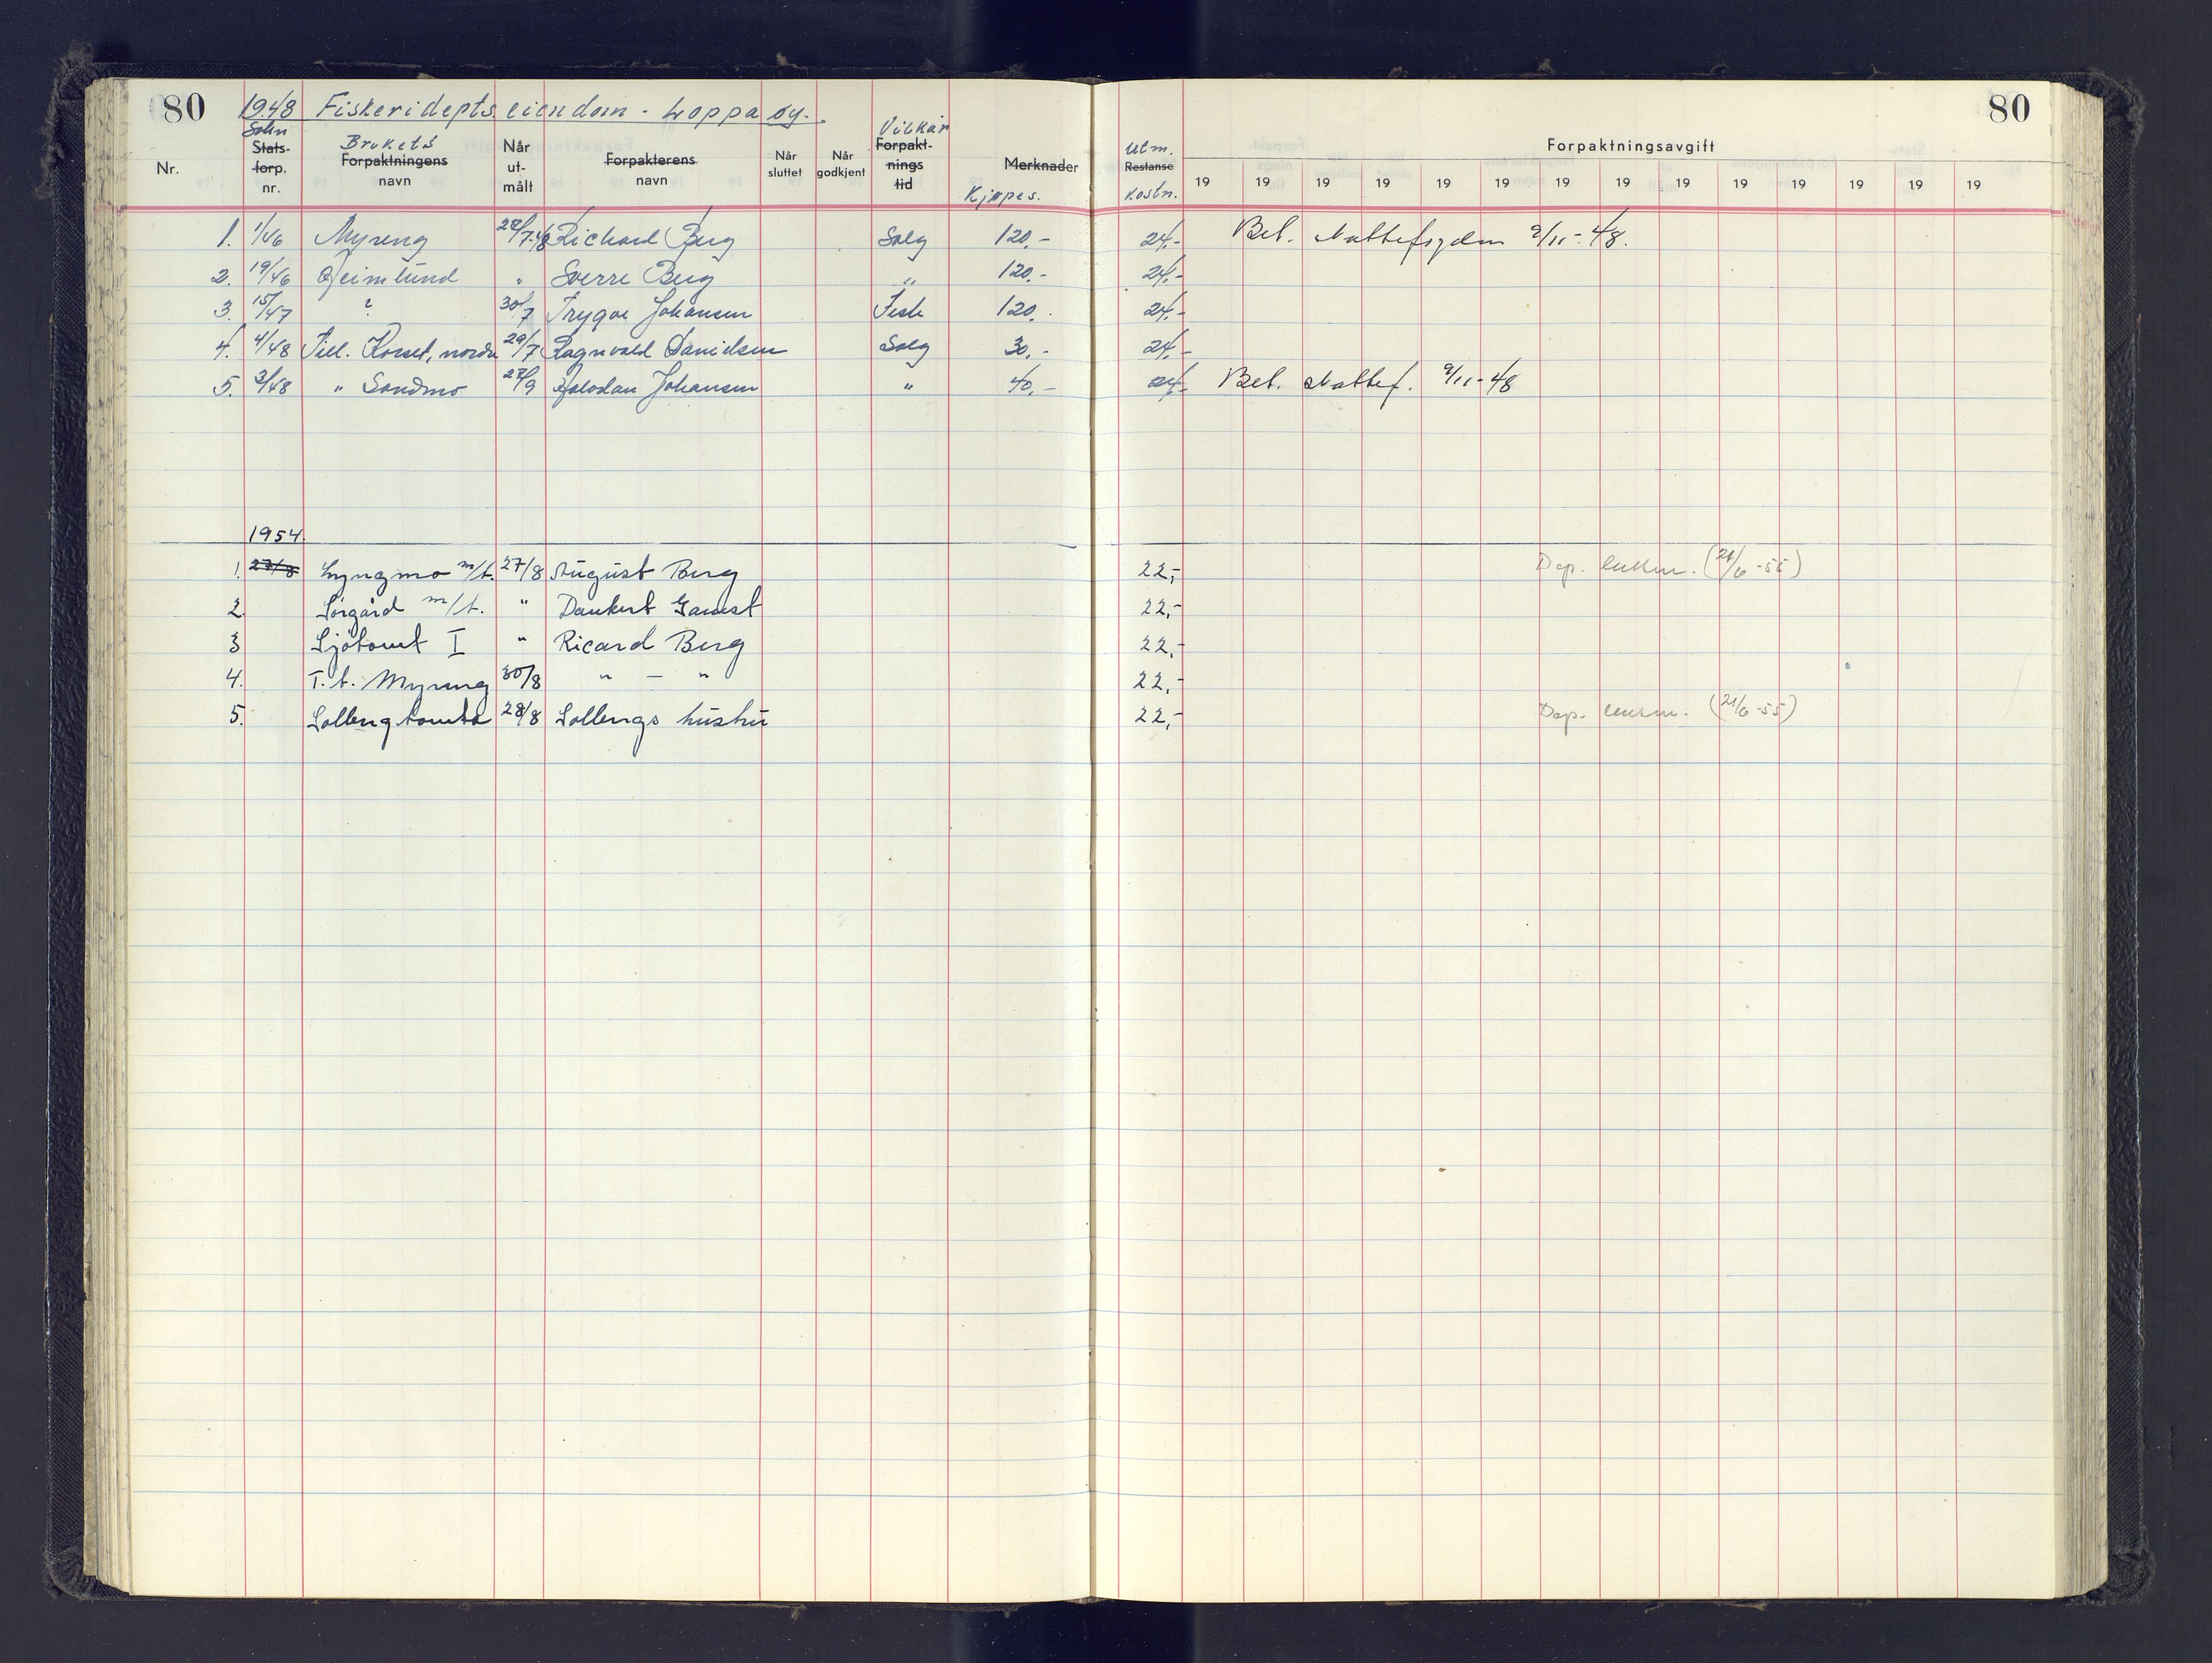 80 1948 Fiskeridepts. eiendom - Loppa øy. 80
Nr. Søkn Stats-forp. nr. Brukets Forpaktningens navn Når ut-målt Forpakterens navn Når sluttet Når godkjent Vilkår Forpakt-nings tid Merknader Kjøpes. Utm. Restanse kostn. Forpaktningsavgift
19 19 19 19 19 19 19 19 19 19 19 19 19 19
1. 1/46 Myreng 28/7-48 Richard Berg Salg 120,- 24,- Bet. skattefogden 9/11-48.
2. 19/46 Heimlund " Sverre Berg " 120,- 24,-
3. 15/47 ? 30/7 Trygve Johansen Feste 120,- 24,-
4. 4/48 Till. Korset, nordre 29/7 Ragnvald Danielsen Salg 30,- 24,-
5. 3/48 " Sandmo 27/9 Halvdan Johansen " 40,- 24,- Bet. skattef. 9/11-48
1954
1. 27/8 Lyngmo m/t. 27/8 August Berg 22,- Dep. (21/6-55)
2. Sørgård m/t. " Dankert 22,-
3 Sjøtomt I " Ricard Berg 22,-
4. T.t. Myreng 30/8 " — " 22,-
5. Solleng tomta 28/8 Sollengs hustru 22,- Dep. (21/6-55)